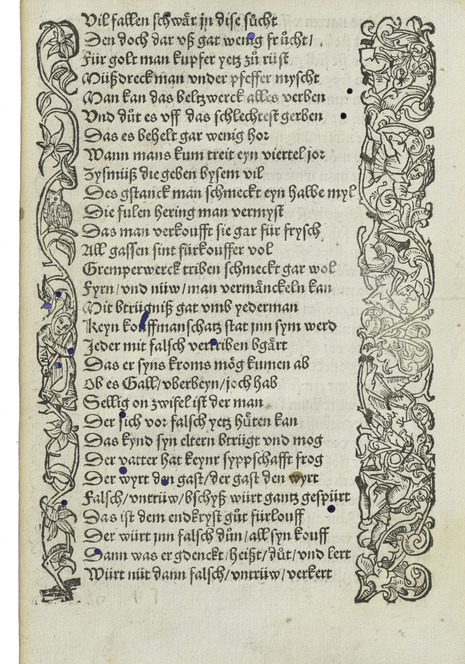 Vil fallen schwår jn dise sůcht
Den doch dar vß gat wenig frůcht/
Für golt man kupfer yetz zů rüst
Müßdreck man vnder pfeffer myscht
Man kan das beltzwerck alles verben
Vnd důt es vff das schlechtest gerben
Das es behelt gar wenig hor
Wann mans kum treit eyn viertel jor
Zysmüß die geben bysem vil
Des gstanck man schmeckt eyn halbe myl
Die fulen hering man vermyst
Das man verkoufft sie gar für frysch
All gassen sint fürkouffer vol
Gremperwerck triben schmeckt gar wol
Fyrn/vnd nüw/man vermånckeln kan
Mit btrügniß gat vmb yederman
Keyn kouffmanschatz stat jnn sym werd
Jeder mit falsch vertriben bgårt
Das er syns kroms mög kumen ab
Ob es Gall/vberbeyn/joch hab
Sellig on zwifel ist der man
Der sich vor falsch yetz hůten kan
Das kynd syn eltern btrügt vnd mog
Der vatter hat keynr syppschafft frog
Der wyrt den gast/der gast den wyrt
Falsch/vntrüw/bschyß würt gantz gespürt
Das ist dem endkryst gůt fürlouff
Der würt jnn falsch důn/all syn kouff
Dann was er gdenckt/heißt/důt/vnd lert
Würt nüt dann falsch/vntrüw/verkert